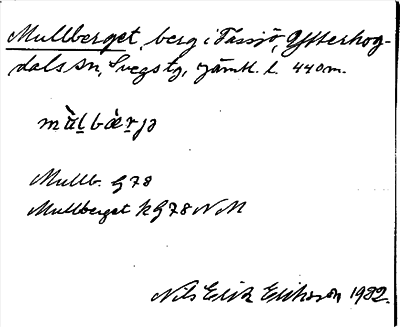 Mullberget, berg i Tåssjö, Ytterhog-
dals sn, Svegs tg, Jämtl. l. 440 m.
Mullb. G78
Mullberget k G78 NM
Nils Erik Eriksson 1982.